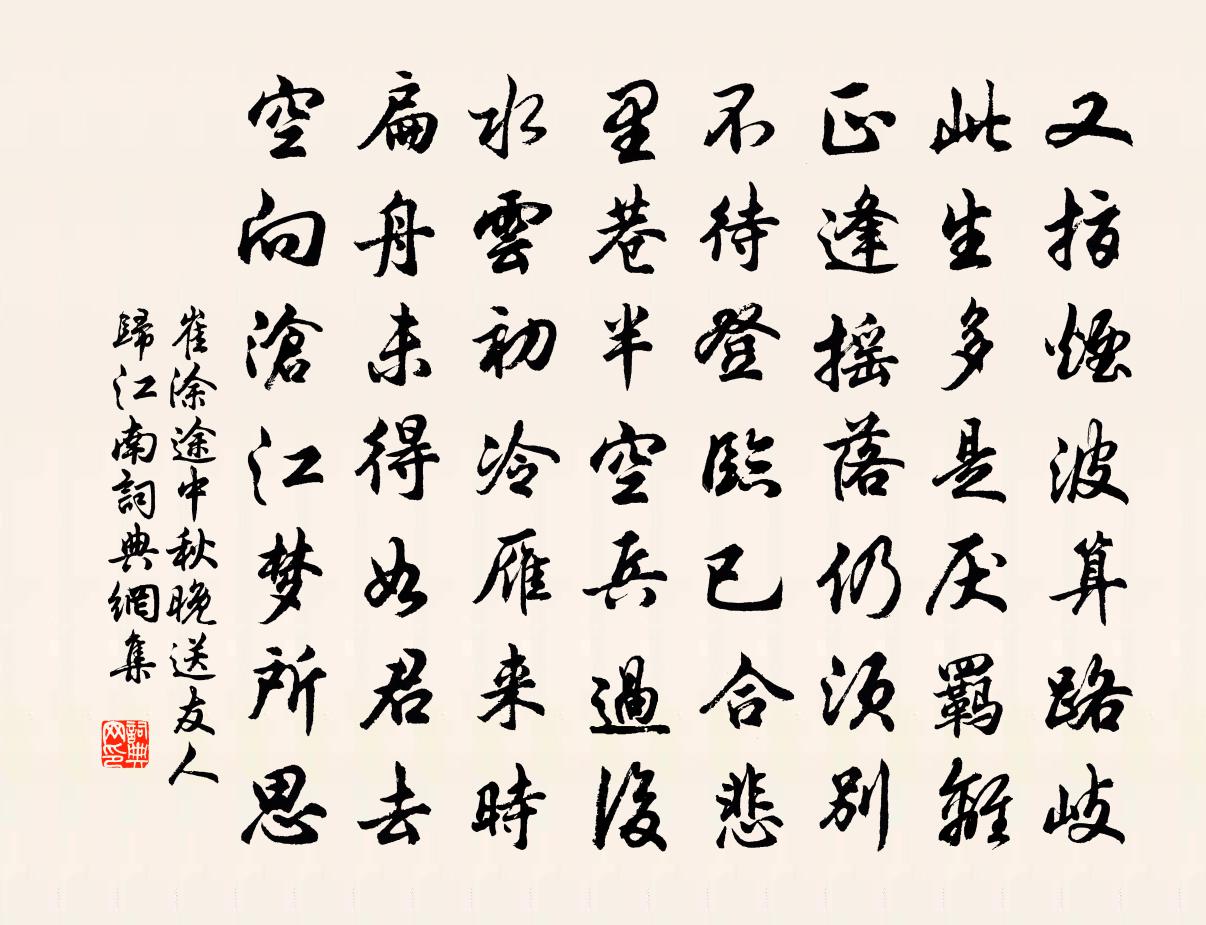 又指煙波算路岐
此生多是厌羈離
正逢摇落仍须别
不待登臨已合悲
里巷半空兵過後
水雲初冷雁来時
扁舟未得如君去
空向滄江梦所思
崔涂途中秋晚送友人
歸江南詞典網集
詞典
网印